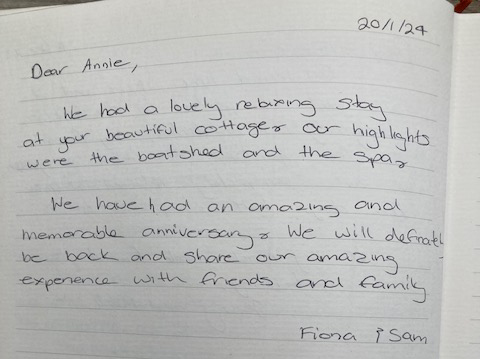 20/1/24
Dear Annie,
We had a lovely relaxing stay
at your beautiful cottage. Our highlights
were the boatshed and the spa.
We have had an amazing and
memorable anniversary. We will definatl
be back and share our amazing
experience with friends and family
Fiona & Sam